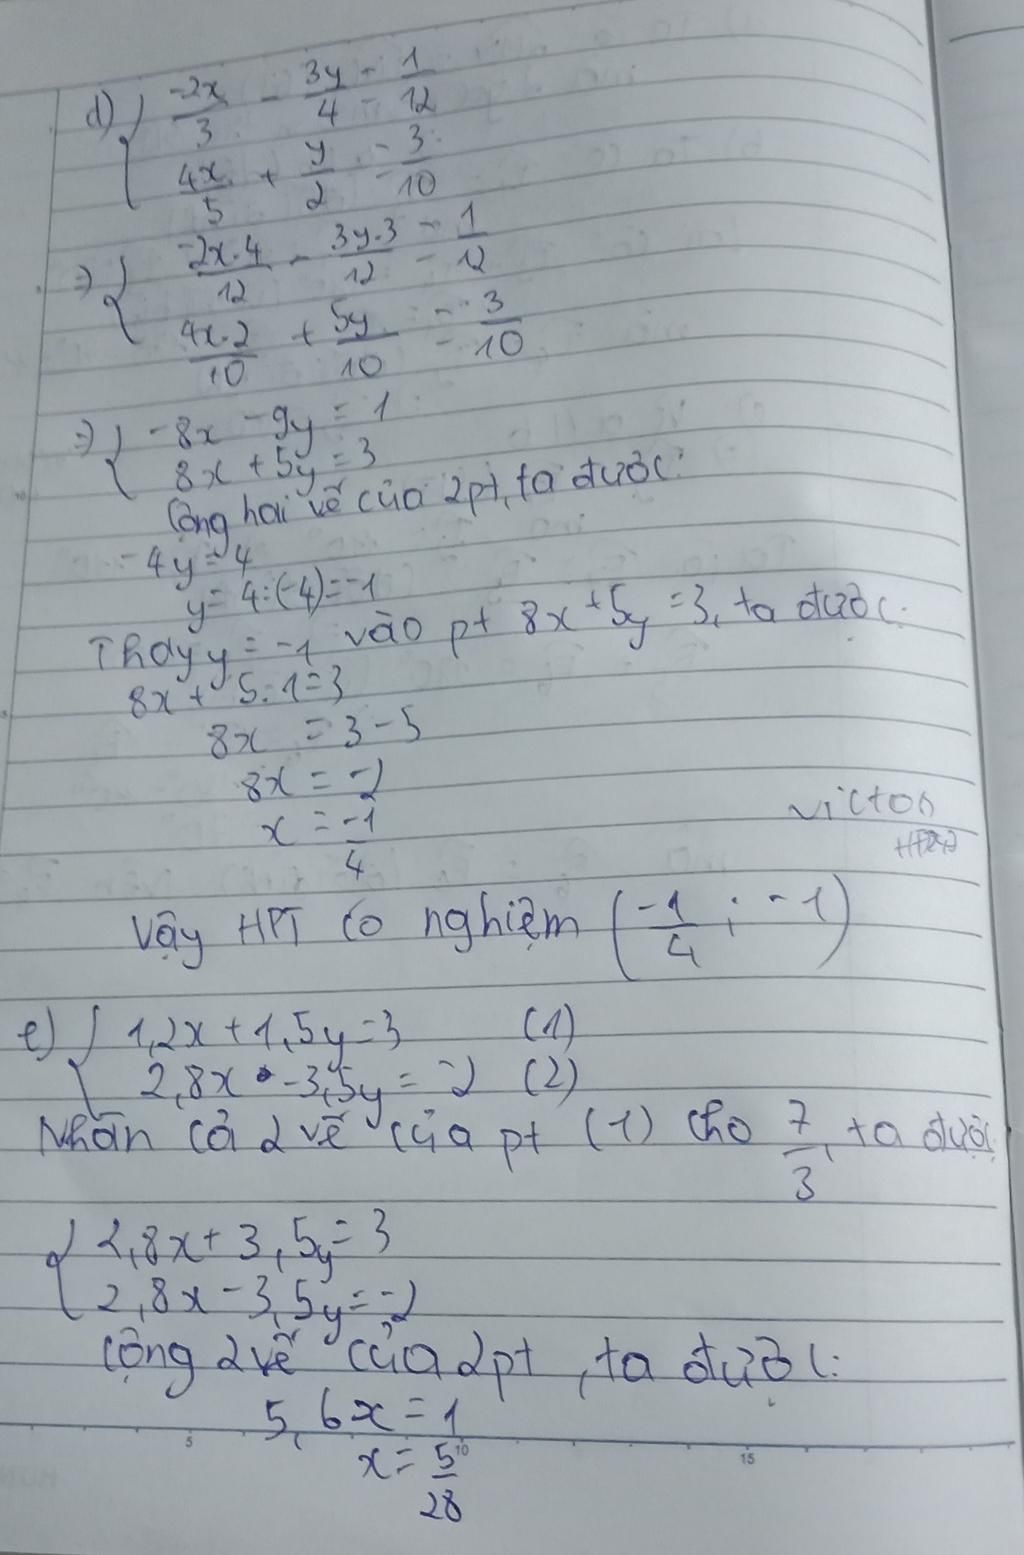 d) { -2x/3 - 3y/4 = 1/12
4x/5 + y/2 = 3/10
=> { -2x.4/12 - 3y.3/12 = 1/12
4x.2/10 + 5y/10 = 3/10
=> { -8x - 9y = 1
8x + 5y = 3
Cộng hai vế của 2pt, ta được:
-4y = 4
y = 4:(-4) = -1
Thay y = -1 vào pt 8x + 5y = 3, ta được:
8x + 5.1 = 3
8x = 3 - 5
8x = -2
x = -1/4
Vậy HPT có nghiệm (-1/4; -1)
e) { 1,2x + 1,5y = 3 (1)
2,8x - 3,5y = -2 (2)
Nhân cả 2 vế của pt (1) cho 7/3, ta được
{ 2,8x + 3,5y = 3
2,8x - 3,5y = -2
Cộng 2 vế của 2pt, ta được:
5,6x = 1
x = 5/28
5 10 15